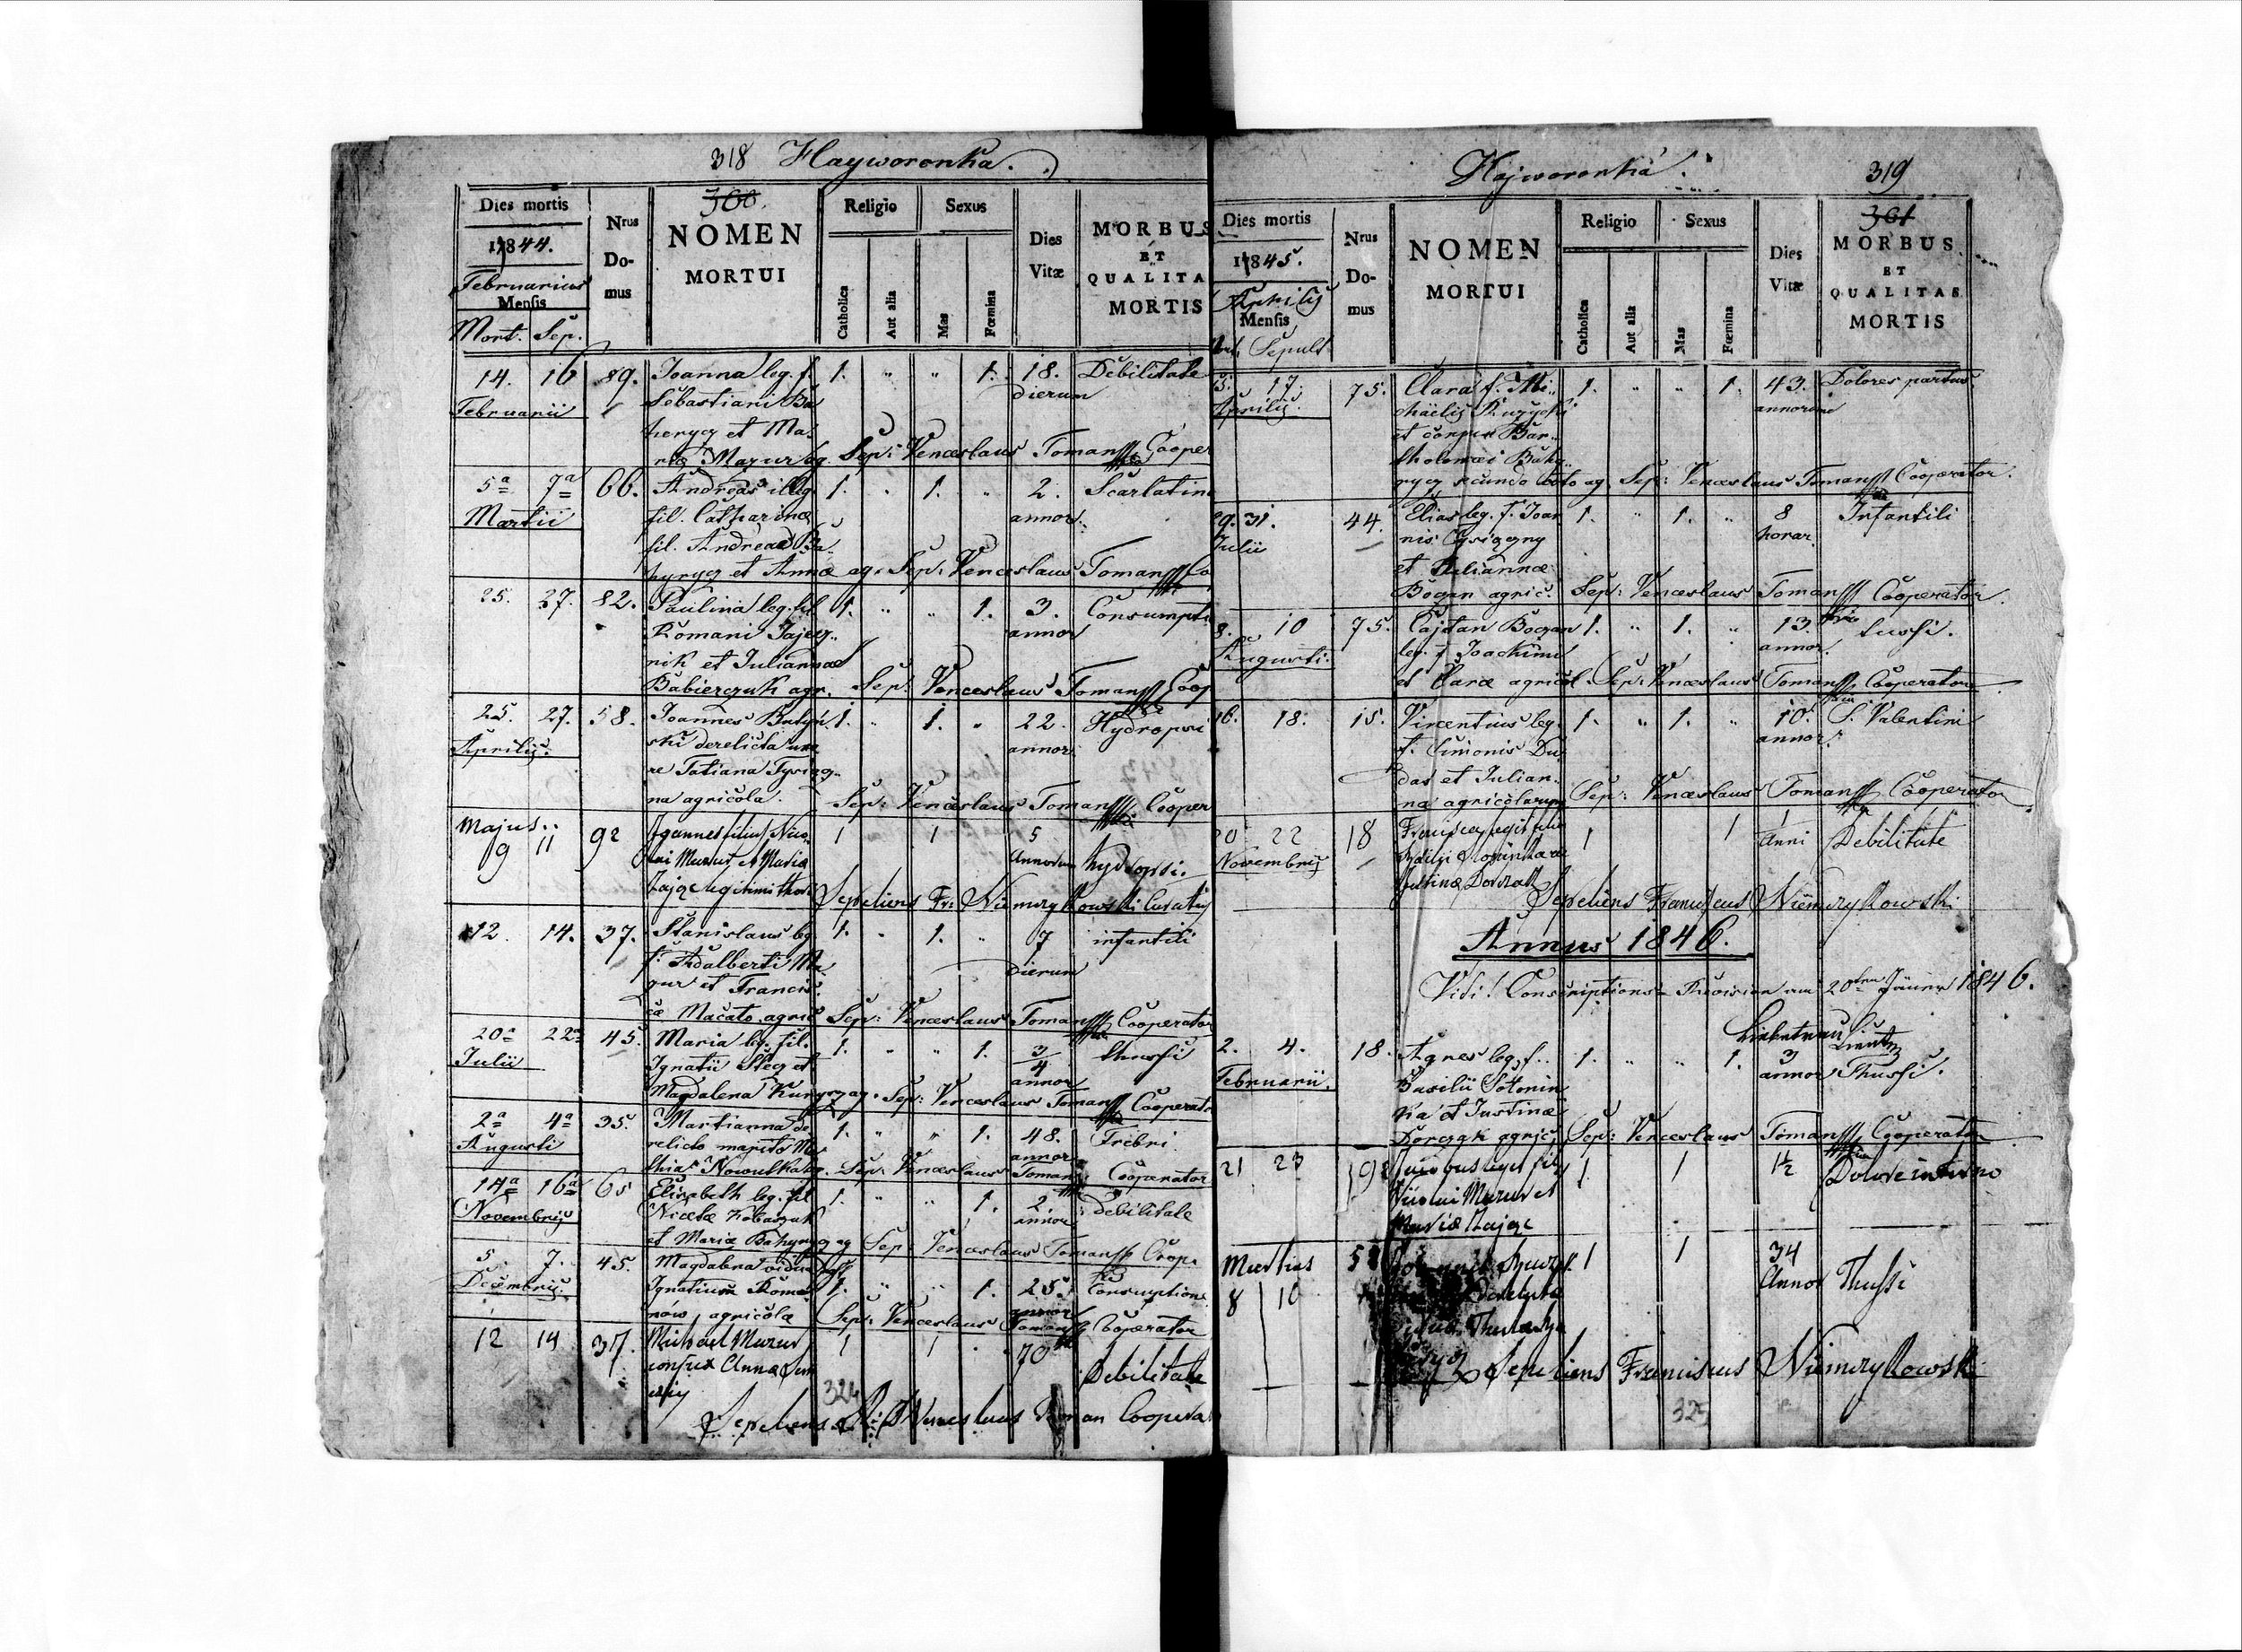 318 Hayworonka.
300.
Dies mortis
Nrus Domus
NOMEN MORTUI
Religio
Sexus
Catholica
Aut alia
Mas
Fœmina
Dies Vitæ
MORBUS ET QUALITA MORTIS
1844.
Februarius
Mensis
Mort. Sep.
14. 16 89. Joanna leg. f. 1. " " 1. 18. Debilitate
Februarii Sebastiani Ba dierum
herycz et Ma-
riæ Mazur ag. Sep: Venceslaus Toman Cooper
5a 7a 66. Andreas illeg. 1. " 1. " 2. Scarlatina
Martii fil. Catharinæ annor.
fil. Andreae Ba-
hyrycz et Annæ ag. Sep: Venceslaus Toman Co
25. 27. 82. Paulina leg. fil. 1. " " 1. 3. Consumpti
Romani Jajecz- annor
nik et Juliannæ
Babierczuk agr. Sep: Venceslaus Toman Coop
25. 27. 58. Joannes 1. " 1. " 22. Hydropsi
Aprilis. ski derelicta uxo annor.
re Tatiana
na agricola. Sep: Venceslaus Toman Cooper
Majus
9 11 92 Joannes filius Nico- 1 1 5
lai Mazur et Maria Annorum hydropsi.
Zając legitimi thori Sepeliens Fr: Niemczykowski Curatus
12. 14. 37. Stanislaus leg. 1. " 1. " 7 infantili
f. Adalberti Ma dierum
zur et Francis-
cæ Macato agric Sep: Venceslaus Toman Cooperator
20a 22a 45. Maria leg. fil. 1. " " 1. 3/4 thussi
Julii Ignatii Stec et annor
Magdalena ag. Sep: Venceslaus Toman Cooperato
2a 4a 35. Martianna de 1. " " 1. 48. Frebri
Augusti relicto marito Ma annor
thia Nowulka ag. Sep: Venceslaus Toman Cooperator
14a 16a 65 Elisabeth leg. fil 1. " " 1. 2. debilitate
Novembris Nicetæ annor
et Mariæ Bahyrycz ag Sep: Venceslaus Toman Coop.
5. 7. 45. Magdalena vidua post
Decembris. Ignatium Roma 1. " " 1. 25. Consumptione
nów agricola Sep: Venceslaus Toman Cooperator
12 14 37. Michael Mazur 1 1 70
conjux Annæ Debilitate
324
Sepeliens Venceslaus Toman Coopera
Hajworonka.
319
361
Dies mortis
Nrus Domus
NOMEN MORTUI
Religio
Sexus
Catholica
Aut alia
Mas
Fœmina
Dies Vitæ
MORBUS ET QUALITAS MORTIS
1845.
Aprilis
Mensis
Sepult
5. 17. 75. Clara f. Mi- 1. " " 1. 43. Dolores partus
Aprilis. chaelis annorum
et conjux Bar-
tholomæi Bahy-
rycz secundo voto ag Sep: Venceslaus Toman Cooperator.
29. 31. 44. Elias leg. f. Joan 1. " 1. " 8 Infantili
Julii nis horar.
et Juliannæ
Bogan agric. Sep: Venceslaus Toman Cooperator.
8. 10 75. Cajtan Bogan 1. " 1. " 13. tussi.
Augusti. leg. f. Joachimi annor.
et Claræ agricol. Sep: Venceslaus Toman Cooperator
16. 18. 15. Vincentius leg. 1. " 1. " 10. S. Valentini
f. Simonis Du- annor.
das et Julian-
næ agricolarum Sep: Venceslaus Toman Cooperator
20 22 18 1 1 1 Debilitate
Novembris Anni
Justinæ Dorczak
Sepeliens Franciscus Niemczykowski.
Annus 1846.
Vidi! Conscriptions-Revision am 20ten Jänner 1846.
2. 4. 18. Agnes leg. f. 1. " " 1. 3 Thussi.
Februarii. Basilii Sotonin annor
ka et Justinæ
Dorczak agric. Sep: Venceslaus Toman Cooperator
21 23 Jacobus legit fil 1. 1 1½ Dolore interno
Nicolai Mazur et
Mariæ Zając
Martius 1 1 34 Thussi
8 10 derelicta Annor
vidua
Sepeliens Franciscus Niemczykowski
325